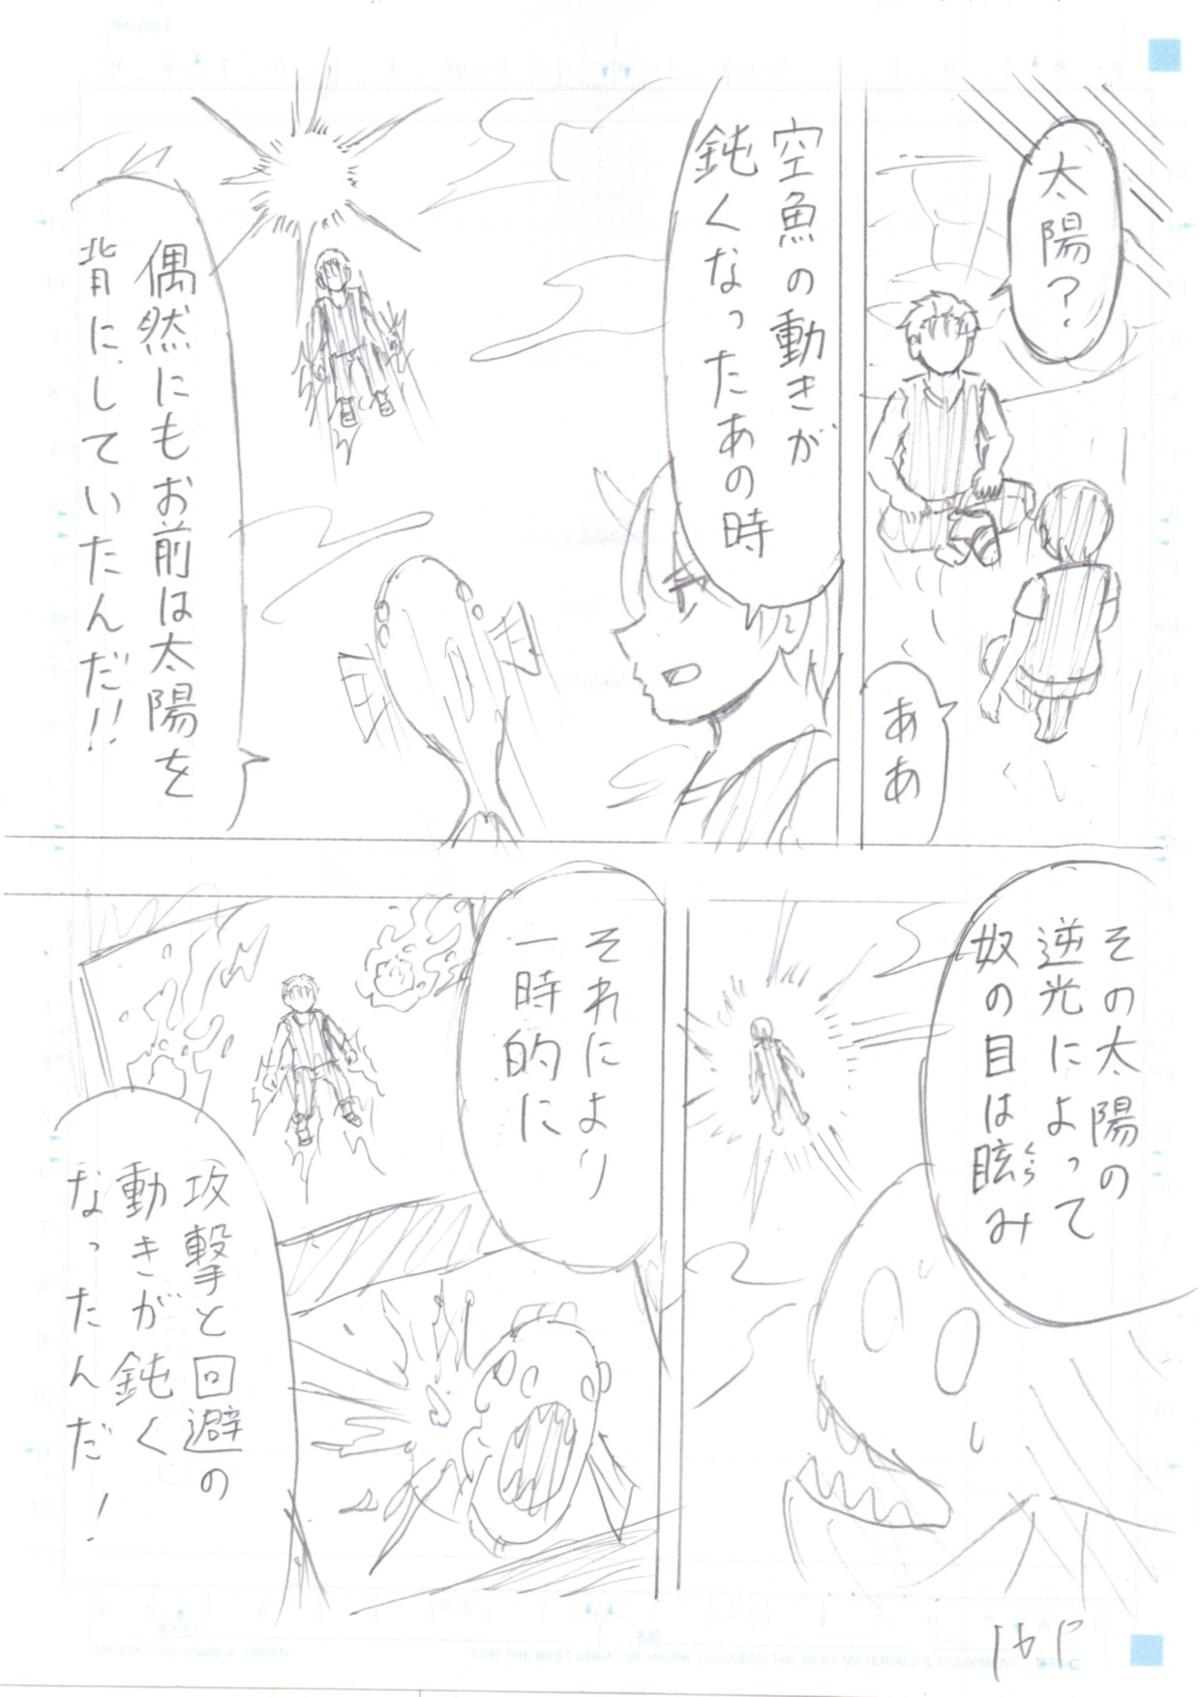 太陽?
ああ
空魚の動きが
鈍くなったあの時
偶然にもお前は太陽を
背にしていたんだ!!
その太陽の
逆光によって
奴の目は眩み
くら
それにより
一時的に
攻撃と回避の
動きが鈍く
なったんだ!
FOR THE BEST CREATIVE WORK YOU NEED THE BEST MATERIALS & EQUIPMENT